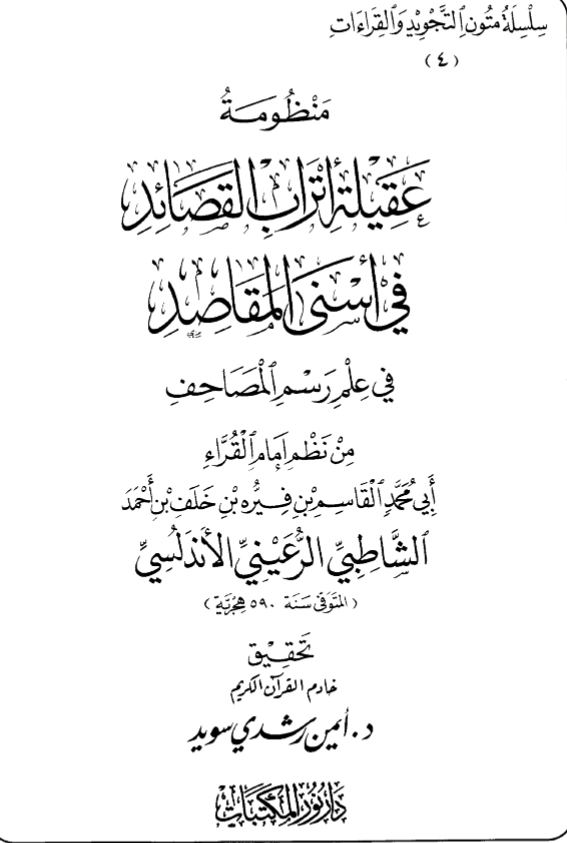 سِلْسِلَةُ مُتُونِ ٱلتَّجْوِيْدِ وَٱلْقِرَاءَاتِ
(٤)
مَنْظُومَةُ
عَقِيْلَةِ أَتْرَابِ القَصَائِدِ
فِي أَسْنَى المَقَاصِدِ
فِي عِلْمِ رَسْمِ ٱلْمَصَاحِفِ
مِنْ نَظْمِ إِمَامِ ٱلْقُرَّاءِ
أَبِي مُحَمَّدٍ ٱلْقَاسِمِ بْنِ فِيْرُّه بْنِ خَلَفِ بْنِ أَحْمَدَ
ٱلشَّاطِبِيِّ الرُّعَيْنِيِّ الأَنْدَلُسِيِّ
(المُتَوَفَّى سَنَةَ ٥٩٠ هِجْرِيَّة)
تَحْقِيْق
خادم القرآن الكريم
د. أيمن رشدي سويد
دَارُ نُورِ المَكْتَبَاتِ